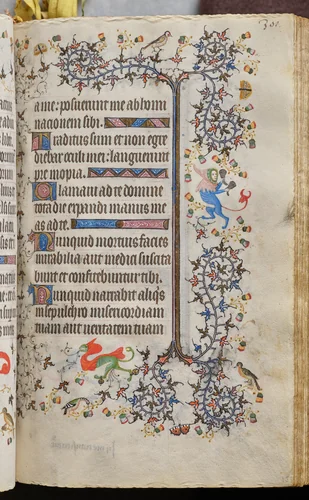 301.
a me: posuerunt me abhomi
nacionem sibi.
Traditus sum et non egre
diebar oculi mei: languerunt
pre inopia.
Clamaui ad te domine
tota die expandi manus me
as ad te.
Nunquid mortuis facies
mirabilia aut medici suscita
bunt et confitebuntur tibi.
Nunquid narrabit aliquis
in sepulchro misericordiam
tuam aut ueritatem tuam